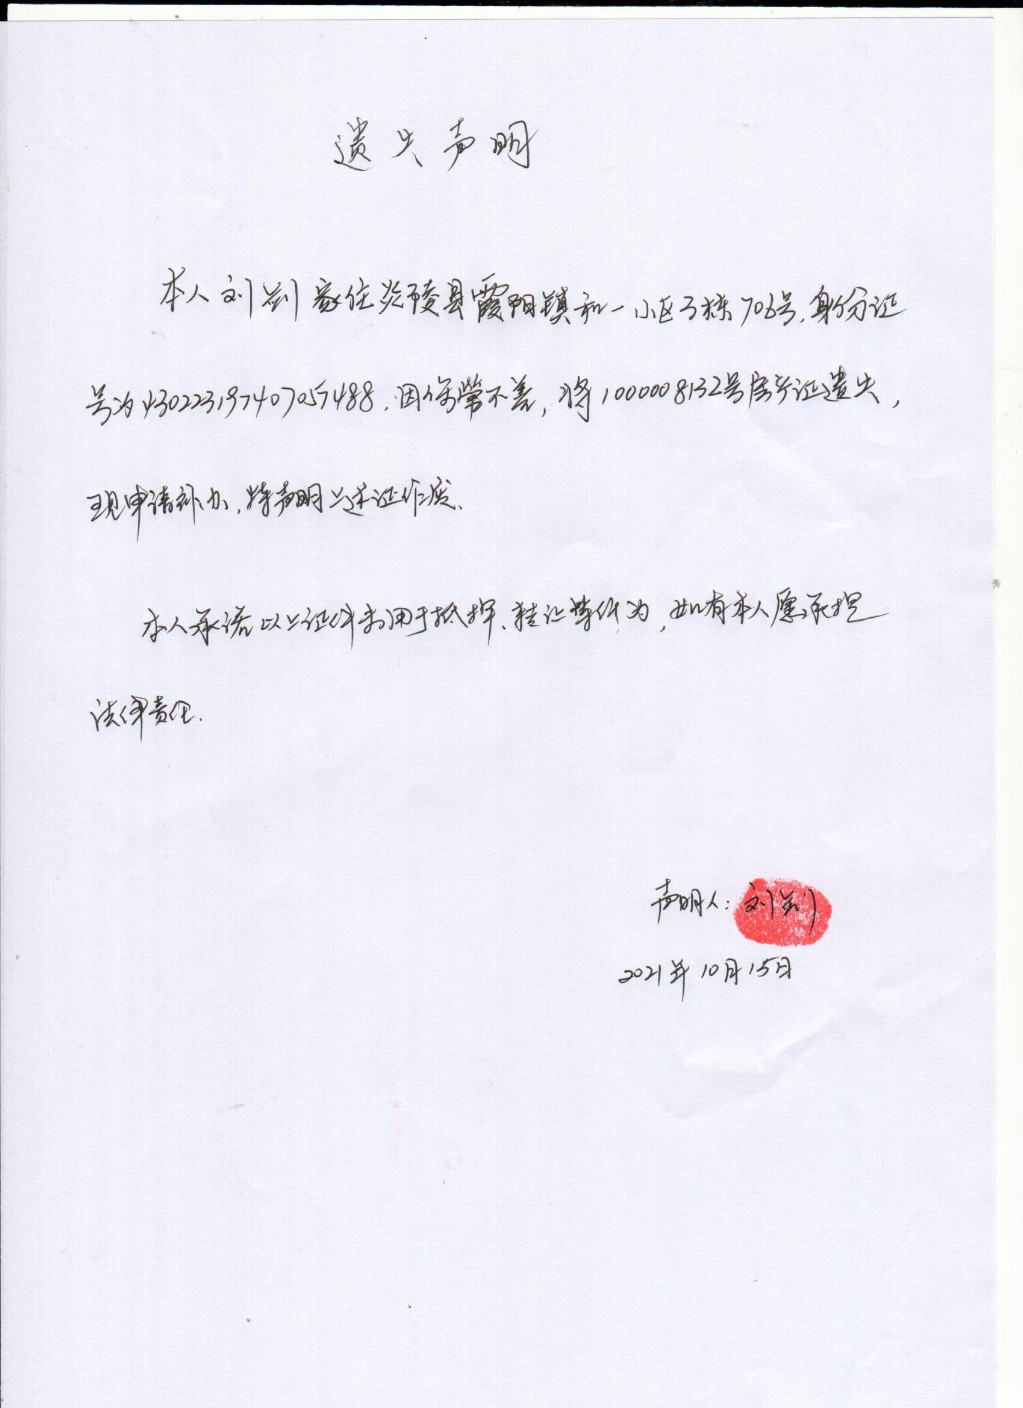 遗失声明
本人刘兰刂家住炎陵县霞阳镇和一小区3栋706号,身份证
号为430223197407057488.因保管不善,将1000008132号房产证遗失,
现申请补办,特声明上述证作废.
本人承诺以上证件未用于抵押、转让等行为,如有本人愿承担
法律责任.
声明人:刘
2021年10月15日